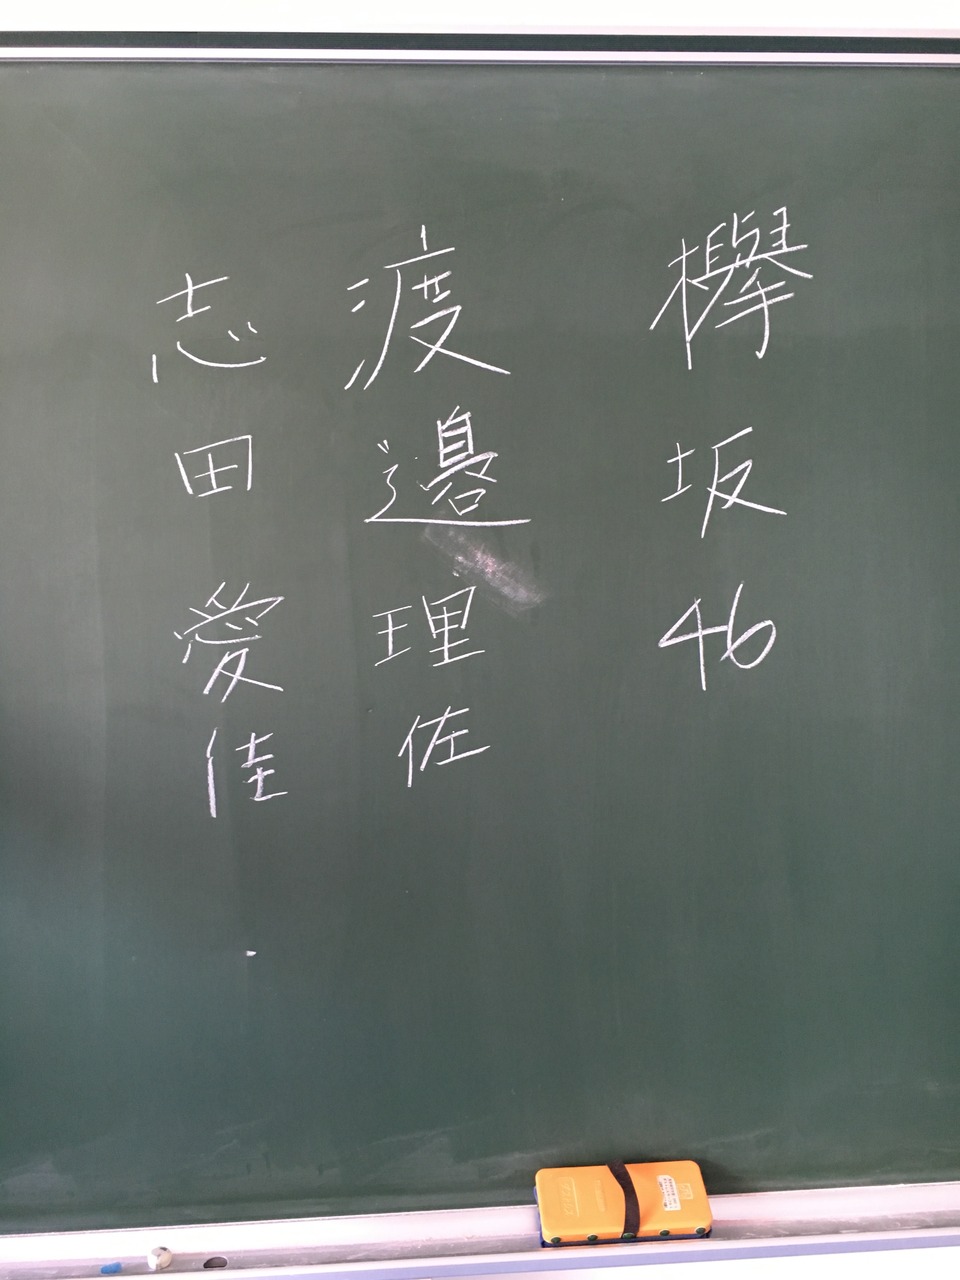 欅坂46
渡邉理佐
志田愛佳